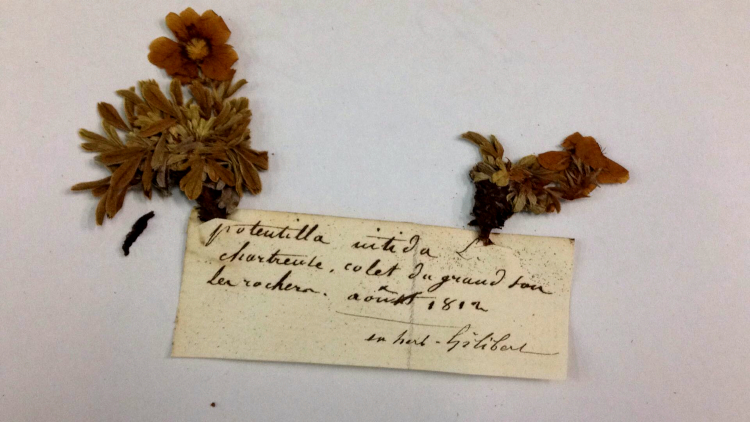 potentilla nitida L
chartreuse. colet du grand son
les rochers. août 1812
ex herb. Gilibert